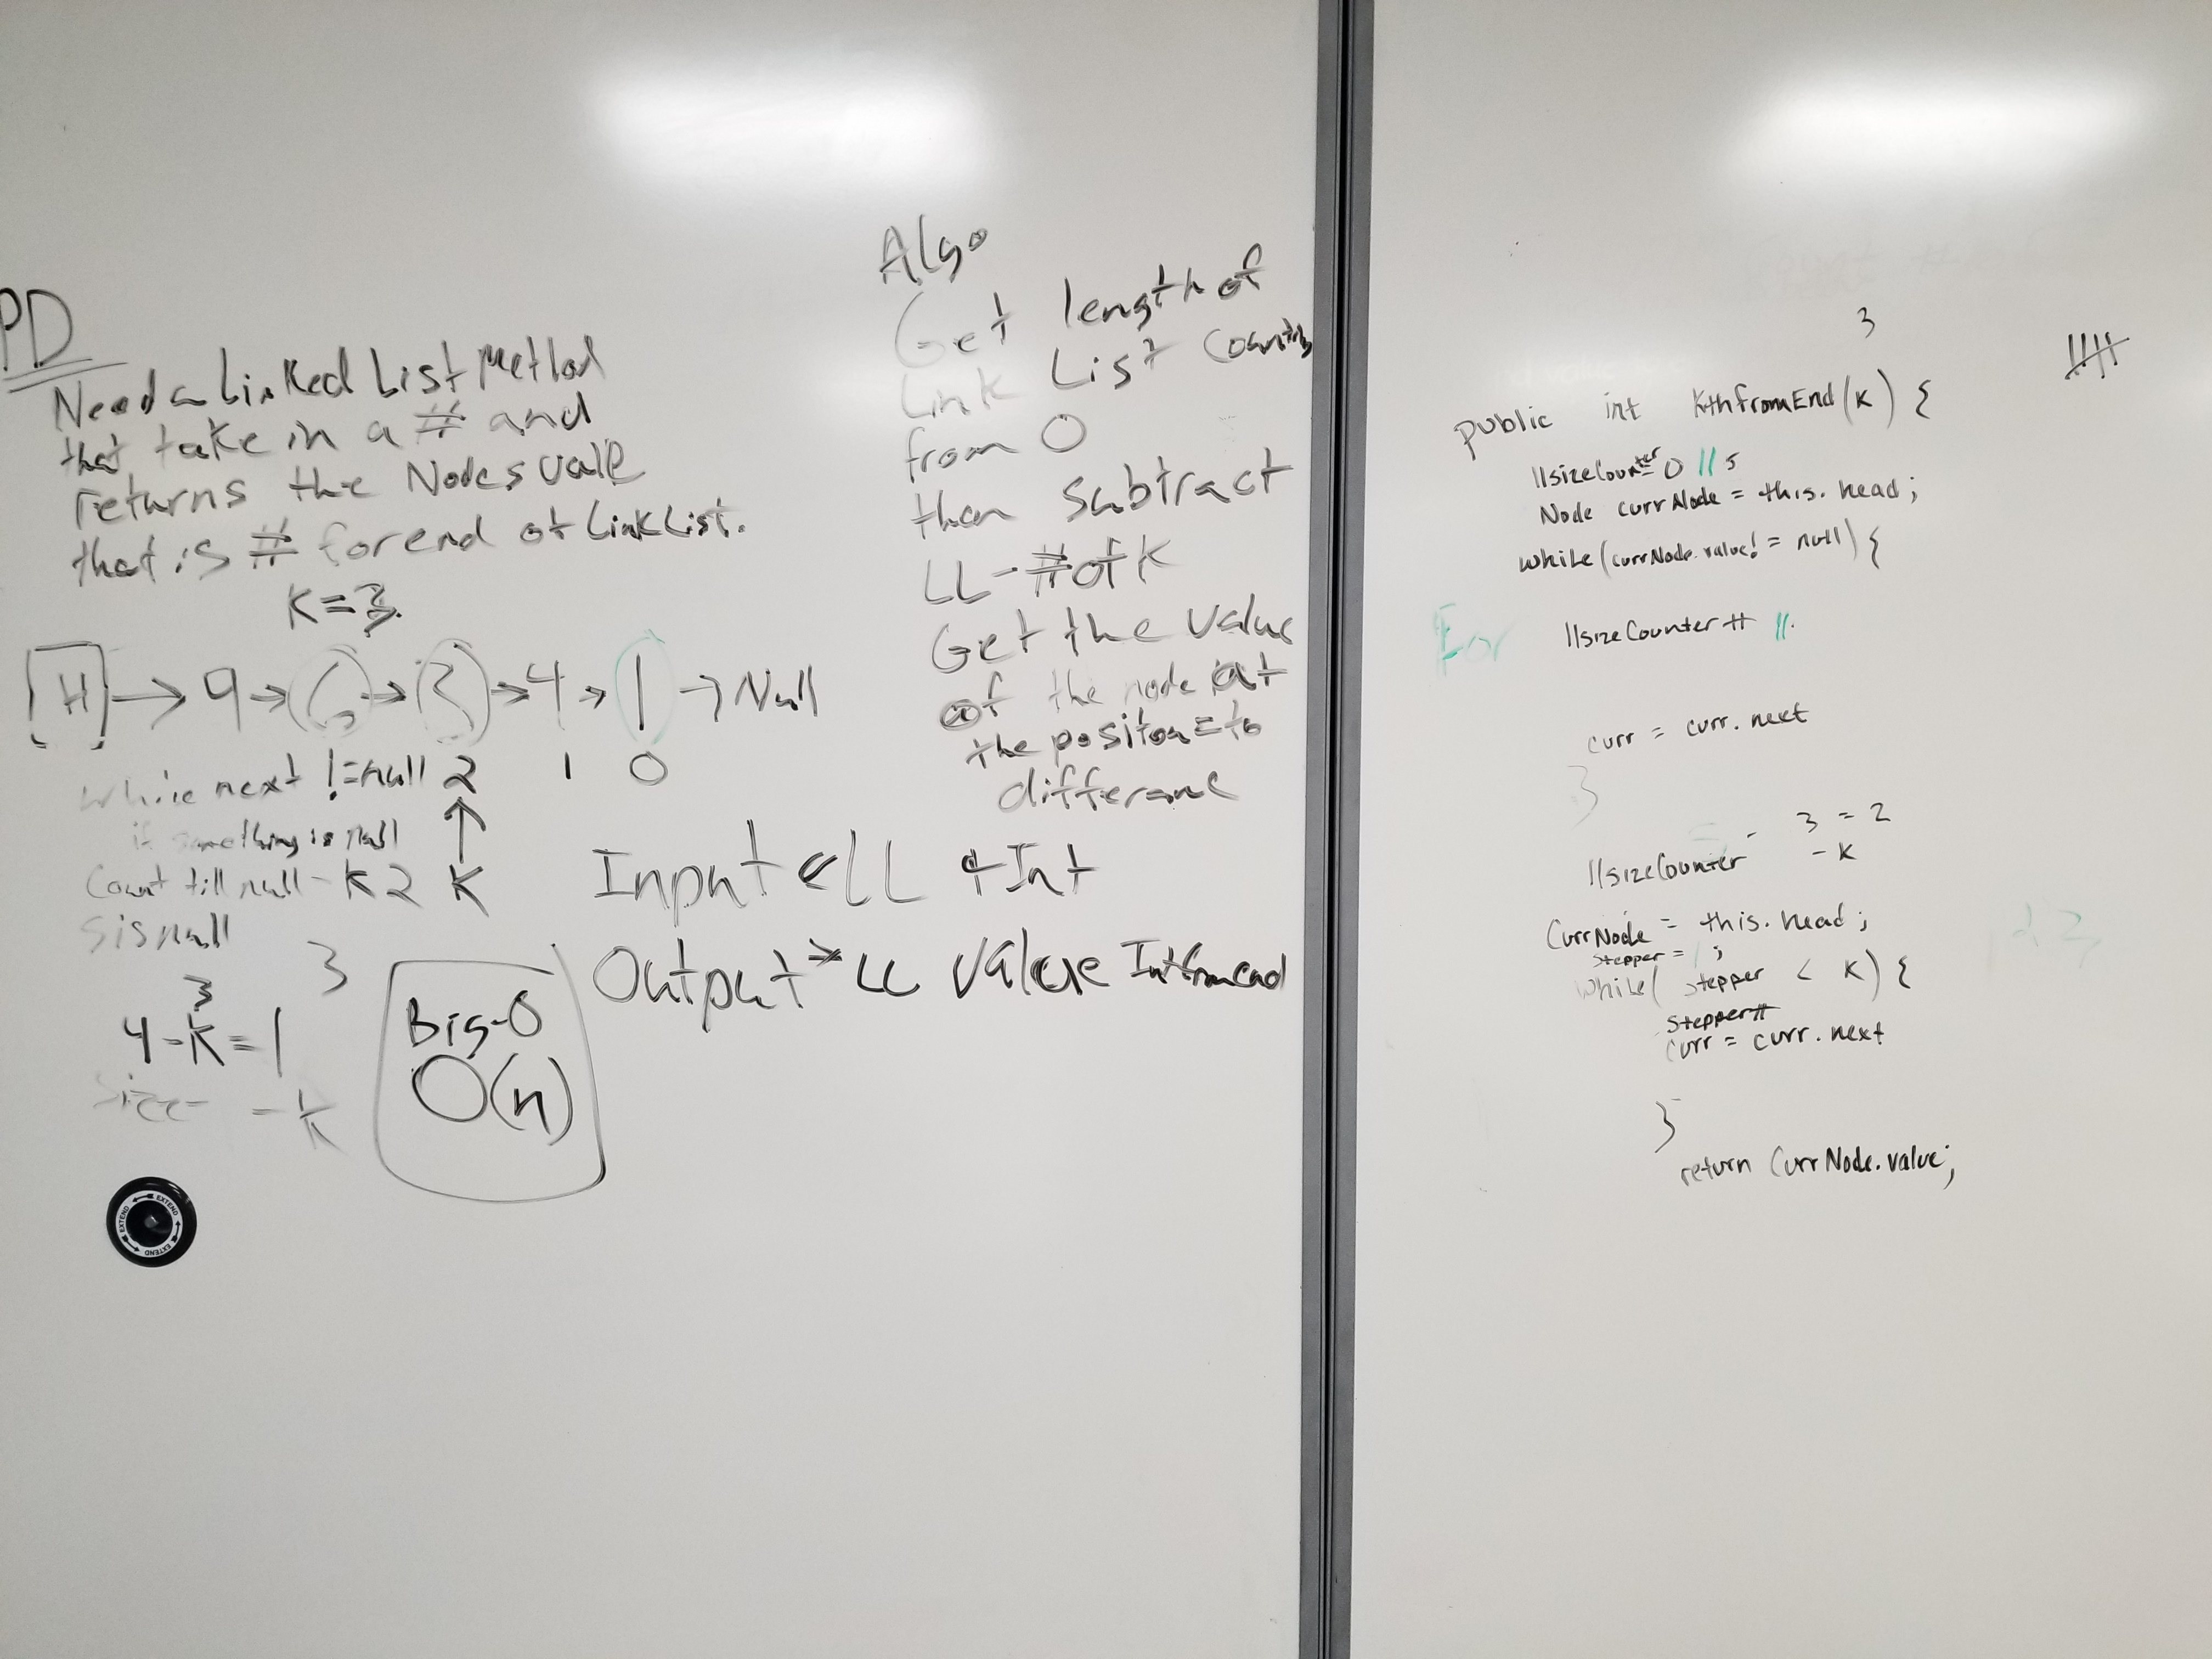 PD
Need a Linked List Method
that take in a # and
returns the Nodes vale
that is # for end of Link List.
K = 3
[H] → 9 → 6 → 3 → 4 → 1 → Null
while next != null 2 1 0
if something is null
Count till null - K 2 K
5 is null
3
3
4 - K = 1
Size - K
Big-O
O(n)
Algo
Get length of
Link List Counting
from 0
then Subtract
LL - # of K
Get the value
of the node at
the positon = to
differance
Input < LL + Int
Output > LL value Int from end
3
public int KthfromEnd(K) {
//sizeCounter = 0 // 5
Node currNode = this.head;
while(currNode.value != null) {
For
//sizeCounter++ //
curr = curr.next
}
- 3 = 2
//sizeCounter - K
CurrNode = this.head;
stepper = 1;
while( stepper < K) {
stepper++
curr = curr.next
}
return CurrNode.value;
EXTEND
EXTEND
EXTEND